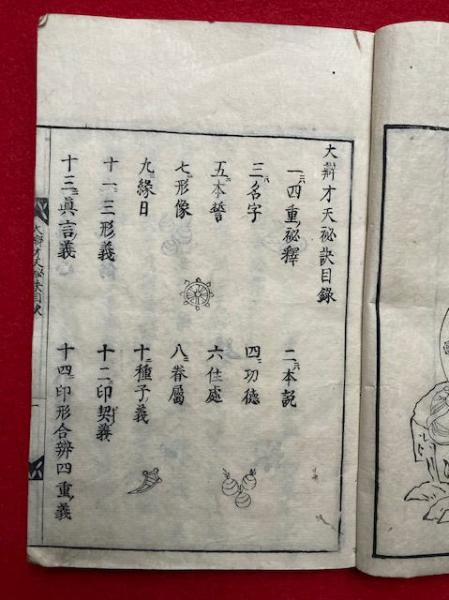 大辨才天祕訣目錄
一四重祕釋
二本説
三名字
四功德
五本誓
六住處
七形像
八眷屬
九緣日
十種子義
十一三形義
十二印契義
十三眞言義
十四印形合辨四重義